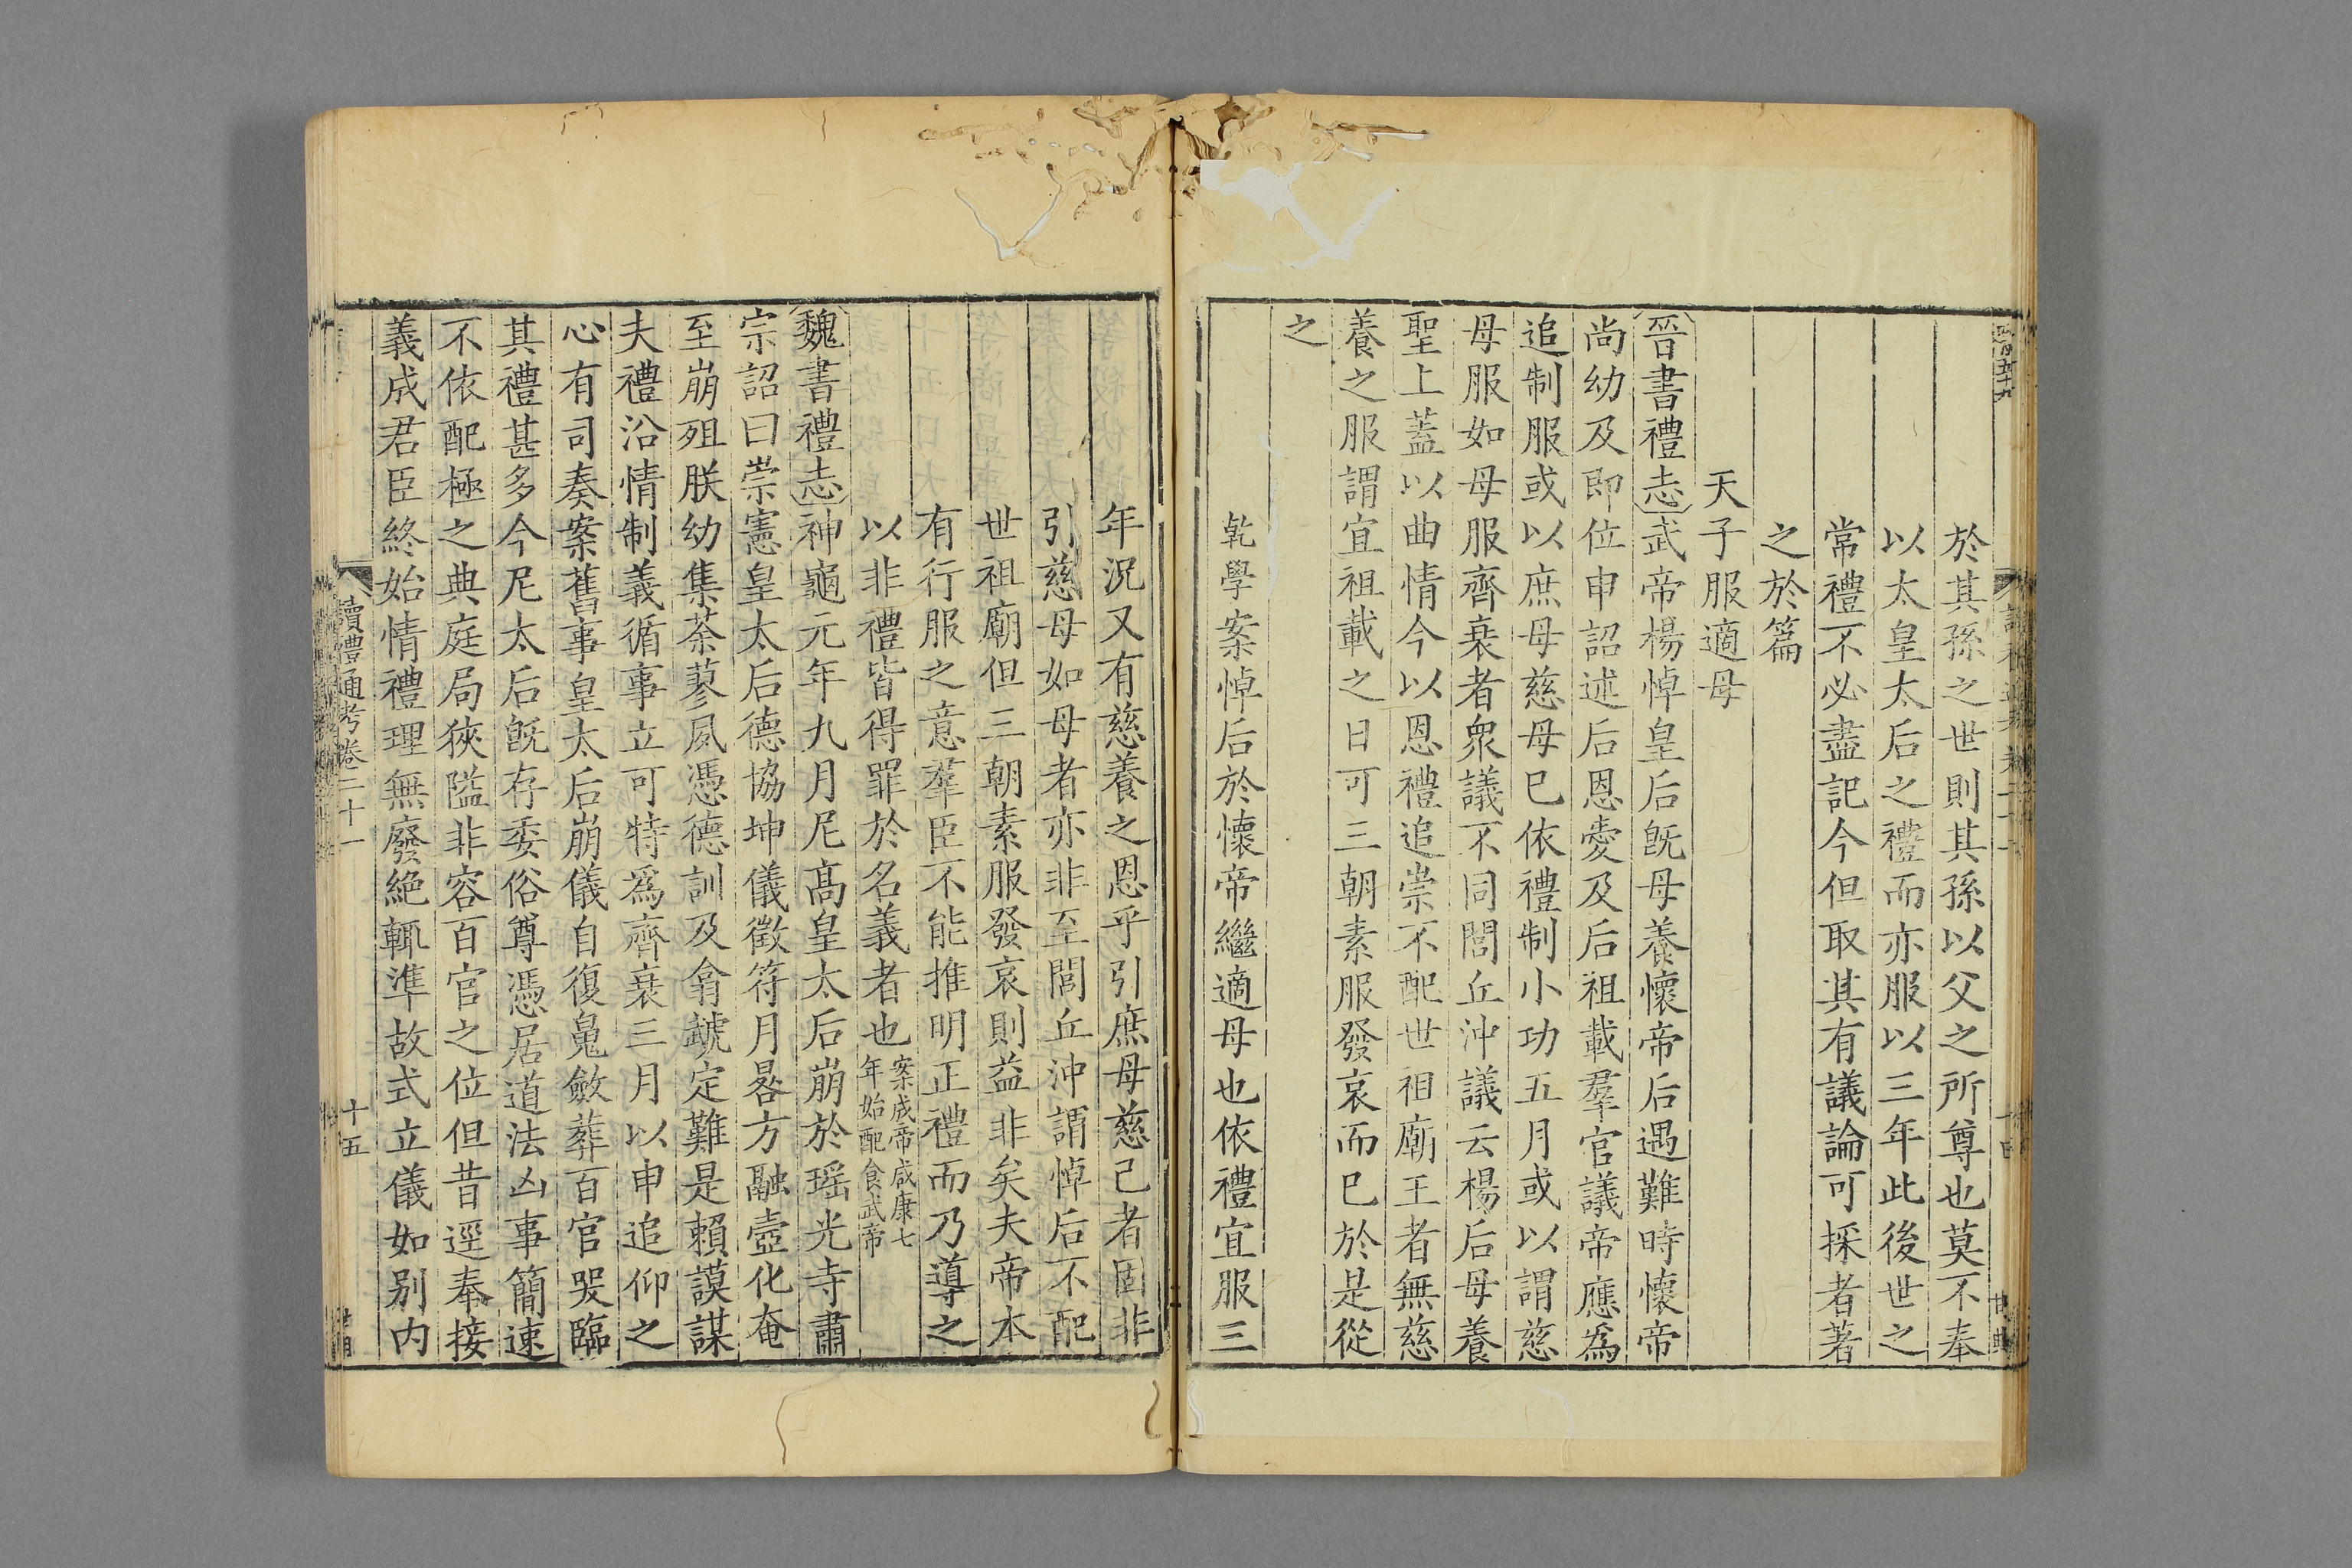 於其孫之世則其孫以父之所尊也莫不奉
以太皇太后之禮而亦服以三年此後世之
常禮不必盡記今但取其有議論可採者著
之於篇
天子服適母
晉書禮志武帝楊悼皇后旣母養懷帝后遇難時懷帝
尚幼及即位申詔述后恩愛及后祖載羣官議帝應爲
追制服或以庶母慈母巳依禮制小功五月或以謂慈
母服如母服齊衰者衆議不同閭丘沖議云楊后母養
聖上蓋以曲情今以恩禮追崇不配世祖廟王者無慈
養之服謂宜祖載之日可三朝素服發哀而巳於是從
之
乾學案悼后於懷帝繼適母也依禮宜服三
年況又有慈養之恩乎引庶母慈己者固非
引慈母如母者亦非至閭丘沖謂悼后不配
世祖廟但三朝素服發哀則益非矣夫帝本
有行服之意羣臣不能推明正禮而乃導之
以非禮皆得罪於名義者也案成帝咸康七
年始配食武帝
魏書禮志神龜元年九月尼髙皇太后崩於瑶光寺肅
宗詔曰崇憲皇太后德協坤儀徵符月晷方融壼化奄
至崩殂朕幼集荼蓼夙憑德訓及翕虣定難是賴謨謀
夫禮沿情制義循事立可特爲齊衰三月以申追仰之
心有司奏案舊事皇太后崩儀自復魄斂葬百官哭臨
其禮甚多今尼太后旣存委俗尊憑居道法凶事簡速
不依配極之典庭局狹隘非容百官之位但昔逕奉接
義成君臣終始情禮理無廢絶輒準故式立儀如别内
續禮通考卷二十一
十五